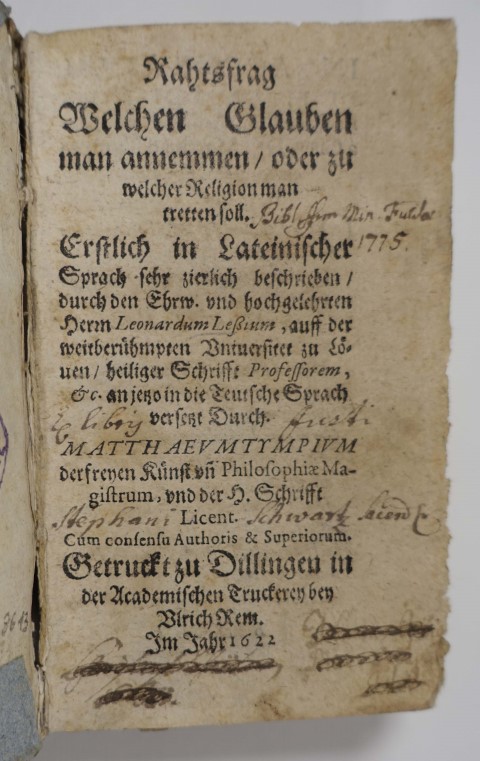 Rahtsfrag
Welchen Glauben
man annemmen / oder zu
welcher Religion man
tretten soll. Bibl. ffrm Min. Fuldae
1775.
Erstlich in Lateinischer
Sprach sehr zierlich beschrieben /
durch den Ehrw. vnd hochgelehrten
Herrn Leonardum Leßium, auff der
weitberühmpten Vniuersitet zu Lö-
uen / heiliger Schrifft Professorem,
&c. an jetzo in die Teutsche Sprach
Ex libris versetzt Durch. Justi
MATTHAEVM TYMPIVM
der freyen Künst vn̄ Philosophiæ Ma-
gistrum, vnd der H. Schrifft
Stephani Licent. Schwartz
Cum consensu Authoris & Superiorum.
Getruckt zu Dillingen in
der Academischen Truckerey bey
Vlrich Rem.
Im Jahr 1622